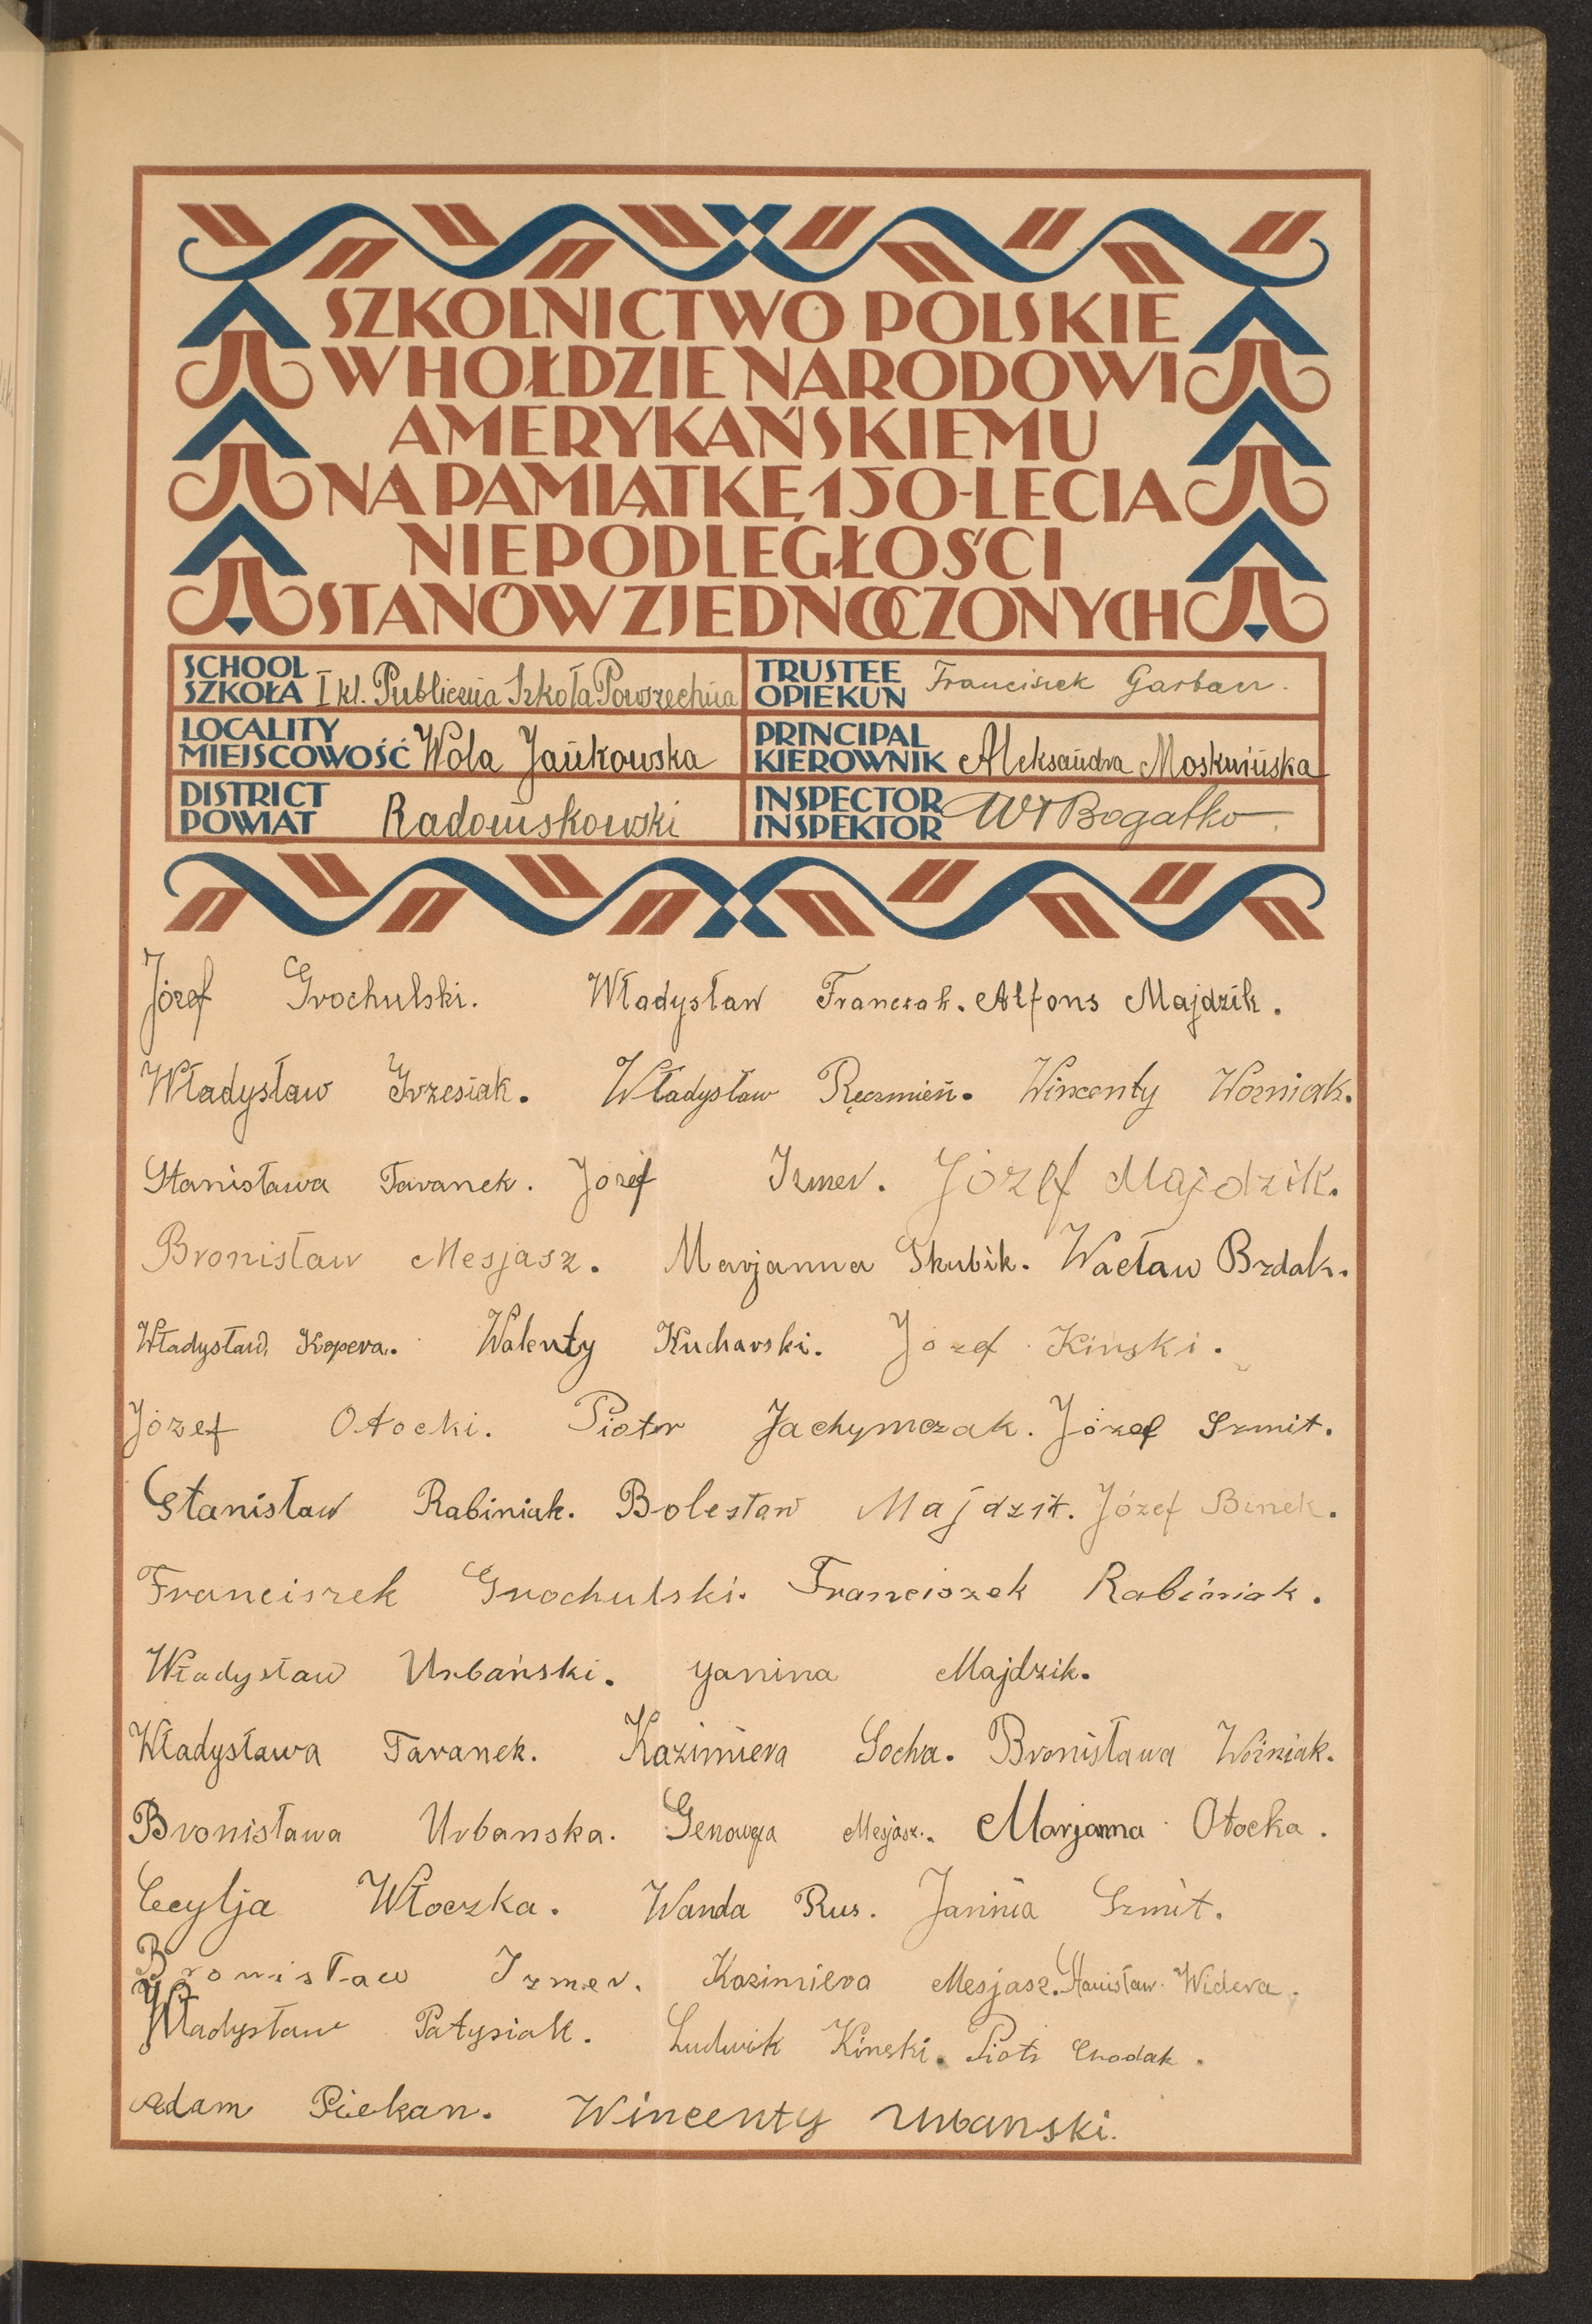 SZKOLNICTWO POLSKIE
W HOŁDZIE NARODOWI
AMERYKAŃSKIEMU
NA PAMIĄTKĘ 150-LECIA
NIEPODLEGŁOŚCI
STANÓW ZJEDNOCZONYCH
SCHOOL
SZKOŁA I kl. Publiczna Szkoła Powszechna
TRUSTEE
OPIEKUN Franciszek Garban.
LOCALITY
MIEJSCOWOŚĆ Wola Jankowska
PRINCIPAL
KIEROWNIK Aleksandra Moskwińska
DISTRICT
POWIAT Radomskowski
INSPECTOR
INSPEKTOR Wł Bogatko.
Józef Grochulski. Władysław Franczak. Alfons Majdzik.
Władysław Grzesiak. Władysław Ręczmień. Wincenty Wozniak.
Stanisława Taranek. Józef Izmer. Józef Majdzik.
Bronisław Mesjasz. Marjanna Skubik. Wacław Brdak.
Władysław Kopera. Walenty Kucharski. Józef Kinski.
Józef Otocki. Piotr Jachymczak. Józef Szmit.
Stanisław Rabiniak. Bolesław Majdzik. Józef Binek.
Franciszek Grochulski. Franciszek Rabiniak.
Władysław Urbański. Janina Majdzik.
Władysława Taranek. Kazimiera Socha. Bronisława Woźniak.
Bronisława Urbanska. Genowefa Mesjasz. Marjanna Otocka.
Cecylja Włoczka. Wanda Rus. Janina Szmit.
Bronisław Izmer. Kazimiera Mesjasz. Stanisław Widera.
Władysław Patysiak. Ludwik Kinski. Piotr Chodak.
Adam Piekan. Wincenty Urbanski.